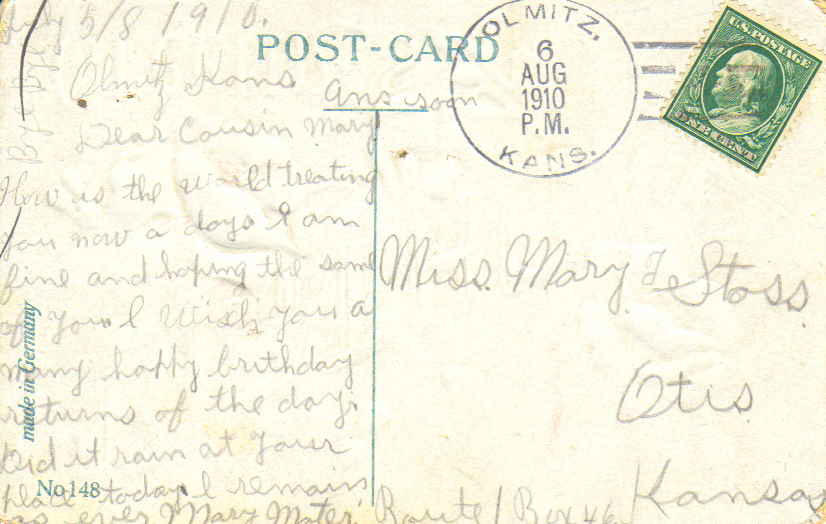 5/8 1910.
POST-CARD
Olmitz Kans
Ans soon
Dear Cousin Mary
How is the world treating
you now a days I am
fine and hoping the same
of you I wish you a
many happy birthday
returns of the day.
Did it rain at your
place today I remain
as ever Mary Mater. Route 1 Box 46
Bye Bye
made in Germany
No 148
OLMITZ,
6
AUG
1910
P.M.
KANS.
U.S. POSTAGE
ONE CENT
Miss. Mary F Stoss.
Otis
Kansas